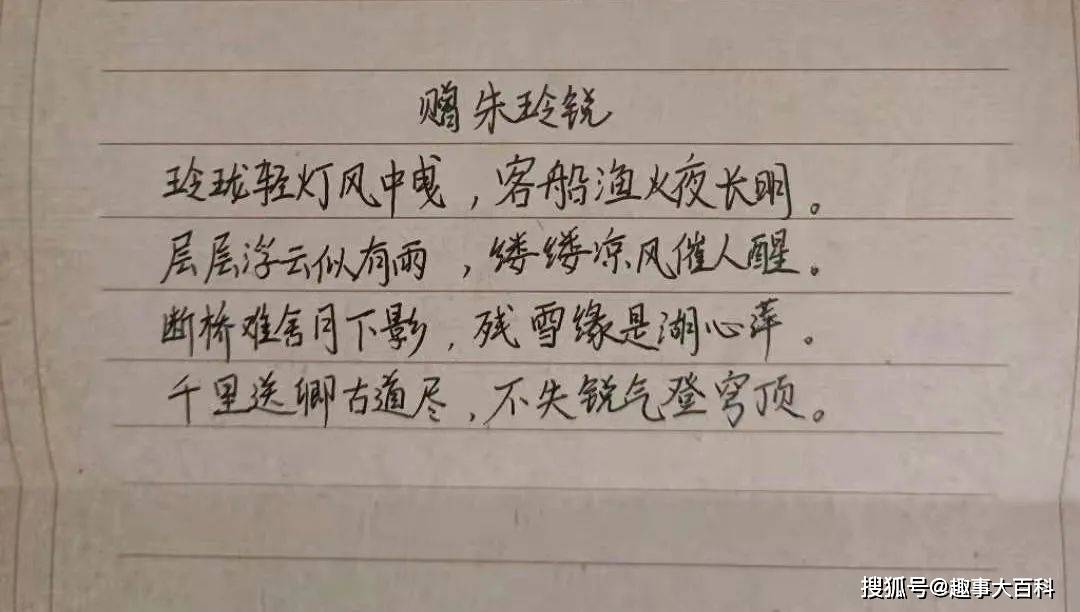 赠朱玲锐
玲珑轻灯风中曳，客船渔火夜长明。
层层浮云似有雨，缕缕凉风催人醒。
断桥难舍月下影，残雪缘是湖心萍。
千里送卿古道尽，不失锐气登穹顶。
搜狐号@趣事大百科